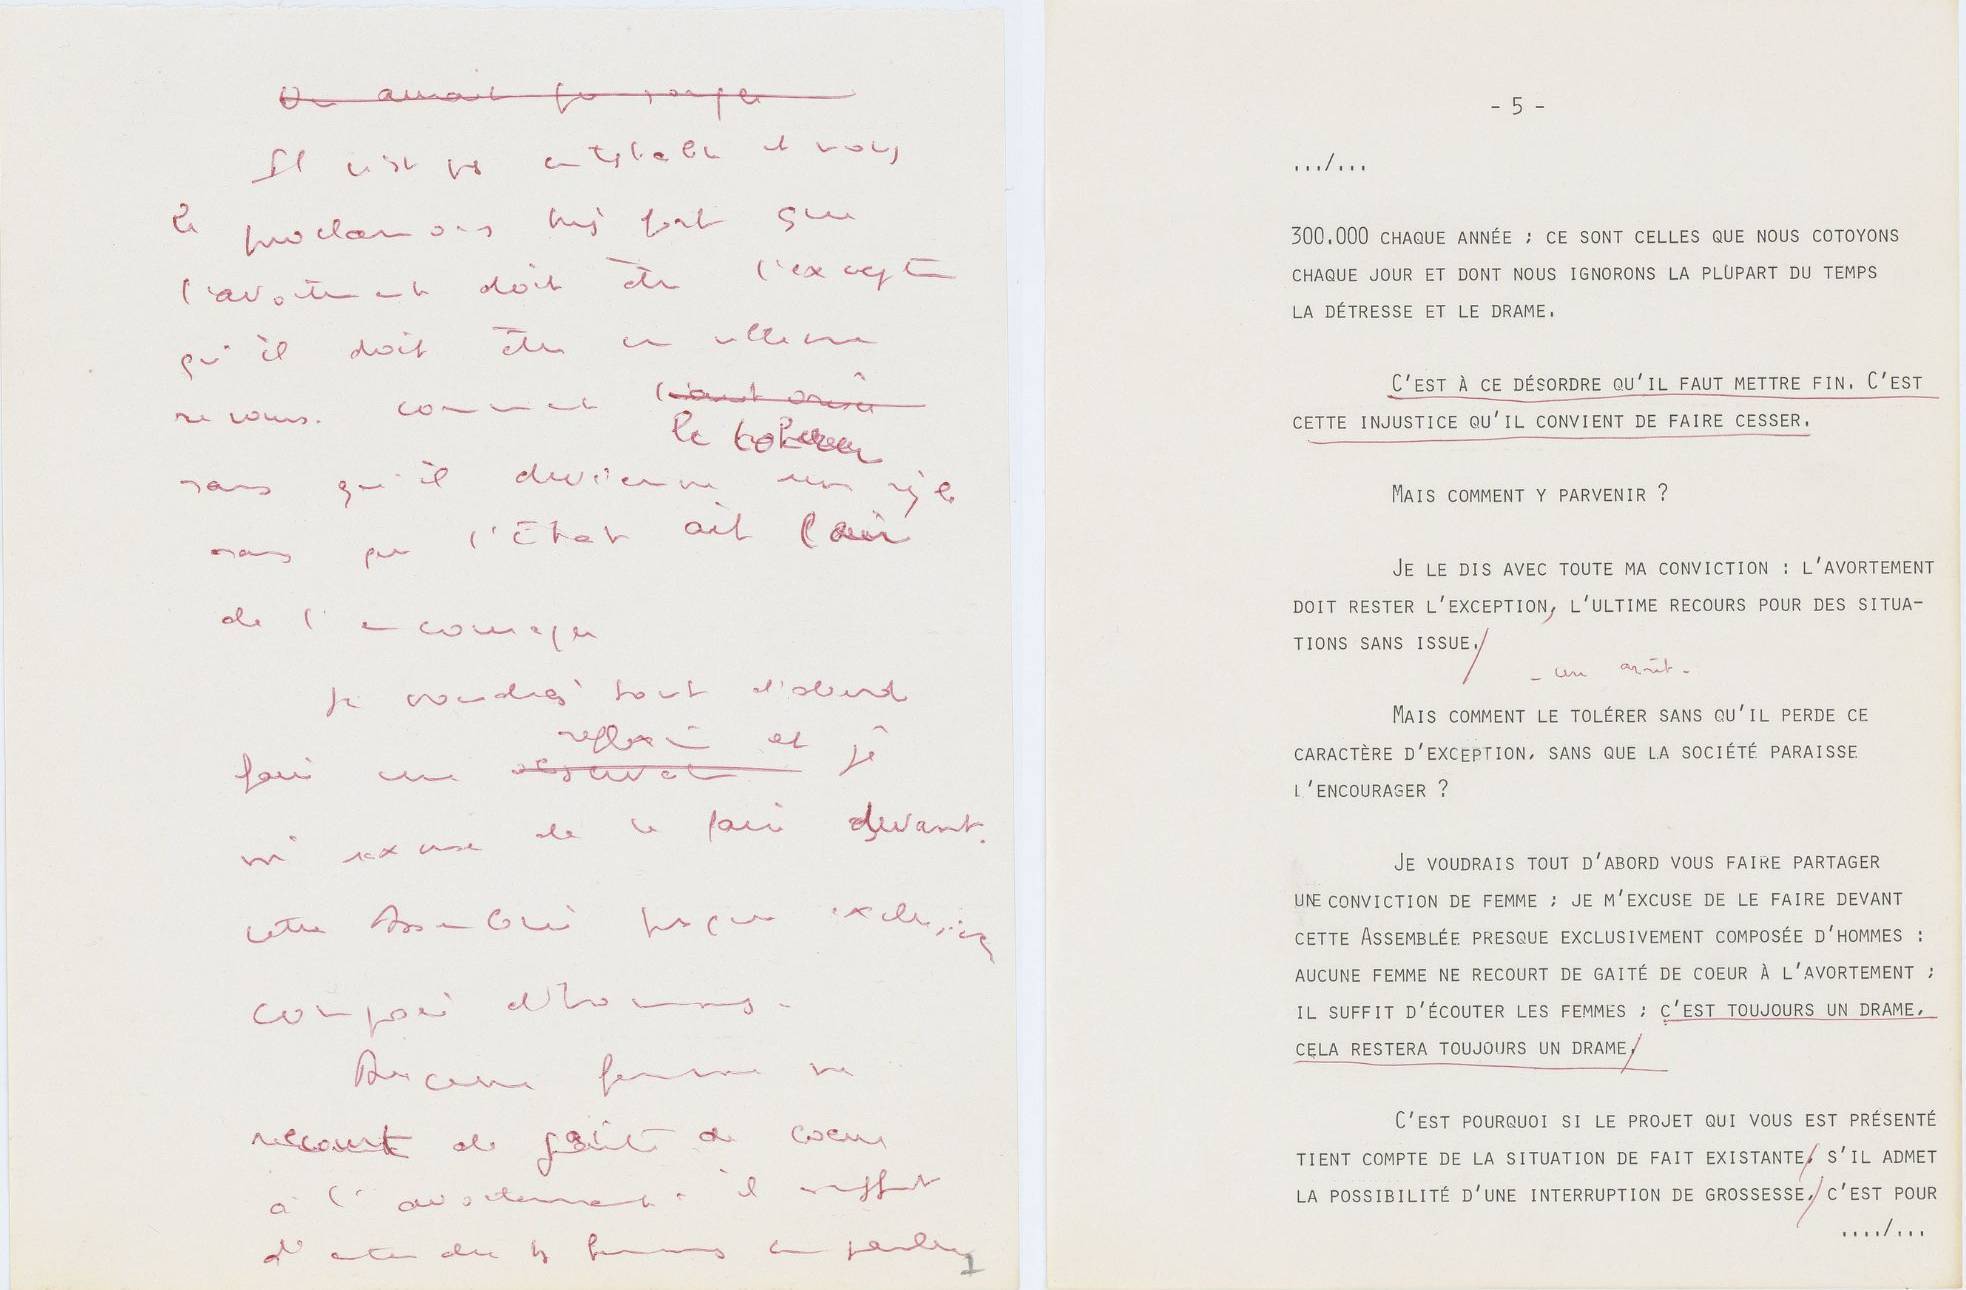 Il n'est pas contestable et nous
le proclamons très fort que
l'avortement doit être l'exception
qu'il doit être un ultime
recours. comment
le tolérer
sans qu'il devienne une règle
sans que l'État ait l'air
de l'encourager
Je voudrais tout d'abord
réflexion et je
faire une
m'excuse de le faire devant
cette Assemblée presque exclusivement
composée d'hommes.
Aucune femme ne
recourt de gaité de coeur
à l'avortement. il suffit
d'entendre les femmes en parler
1
- 5 -
.../...
300.000 CHAQUE ANNÉE ; CE SONT CELLES QUE NOUS COTOYONS
CHAQUE JOUR ET DONT NOUS IGNORONS LA PLÙPART DU TEMPS
LA DÉTRESSE ET LE DRAME.
C'EST À CE DÉSORDRE QU'IL FAUT METTRE FIN. C'EST
CETTE INJUSTICE QU'IL CONVIENT DE FAIRE CESSER.
MAIS COMMENT Y PARVENIR ?
JE LE DIS AVEC TOUTE MA CONVICTION : L'AVORTEMENT
DOIT RESTER L'EXCEPTION, L'ULTIME RECOURS POUR DES SITUA-
TIONS SANS ISSUE./
- un arrêt -
MAIS COMMENT LE TOLÉRER SANS QU'IL PERDE CE
CARACTÈRE D'EXCEPTION, SANS QUE LA SOCIÉTÉ PARAISSE
L'ENCOURAGER ?
JE VOUDRAIS TOUT D'ABORD VOUS FAIRE PARTAGER
UNE CONVICTION DE FEMME ; JE M'EXCUSE DE LE FAIRE DEVANT
CETTE ASSEMBLÉE PRESQUE EXCLUSIVEMENT COMPOSÉE D'HOMMES :
AUCUNE FEMME NE RECOURT DE GAITÉ DE COEUR À L'AVORTEMENT ;
IL SUFFIT D'ÉCOUTER LES FEMMES ; C'EST TOUJOURS UN DRAME,
CELA RESTERA TOUJOURS UN DRAME./
C'EST POURQUOI SI LE PROJET QUI VOUS EST PRÉSENTÉ
TIENT COMPTE DE LA SITUATION DE FAIT EXISTANTE,/ S'IL ADMET
LA POSSIBILITÉ D'UNE INTERRUPTION DE GROSSESSE,/ C'EST POUR
..../...